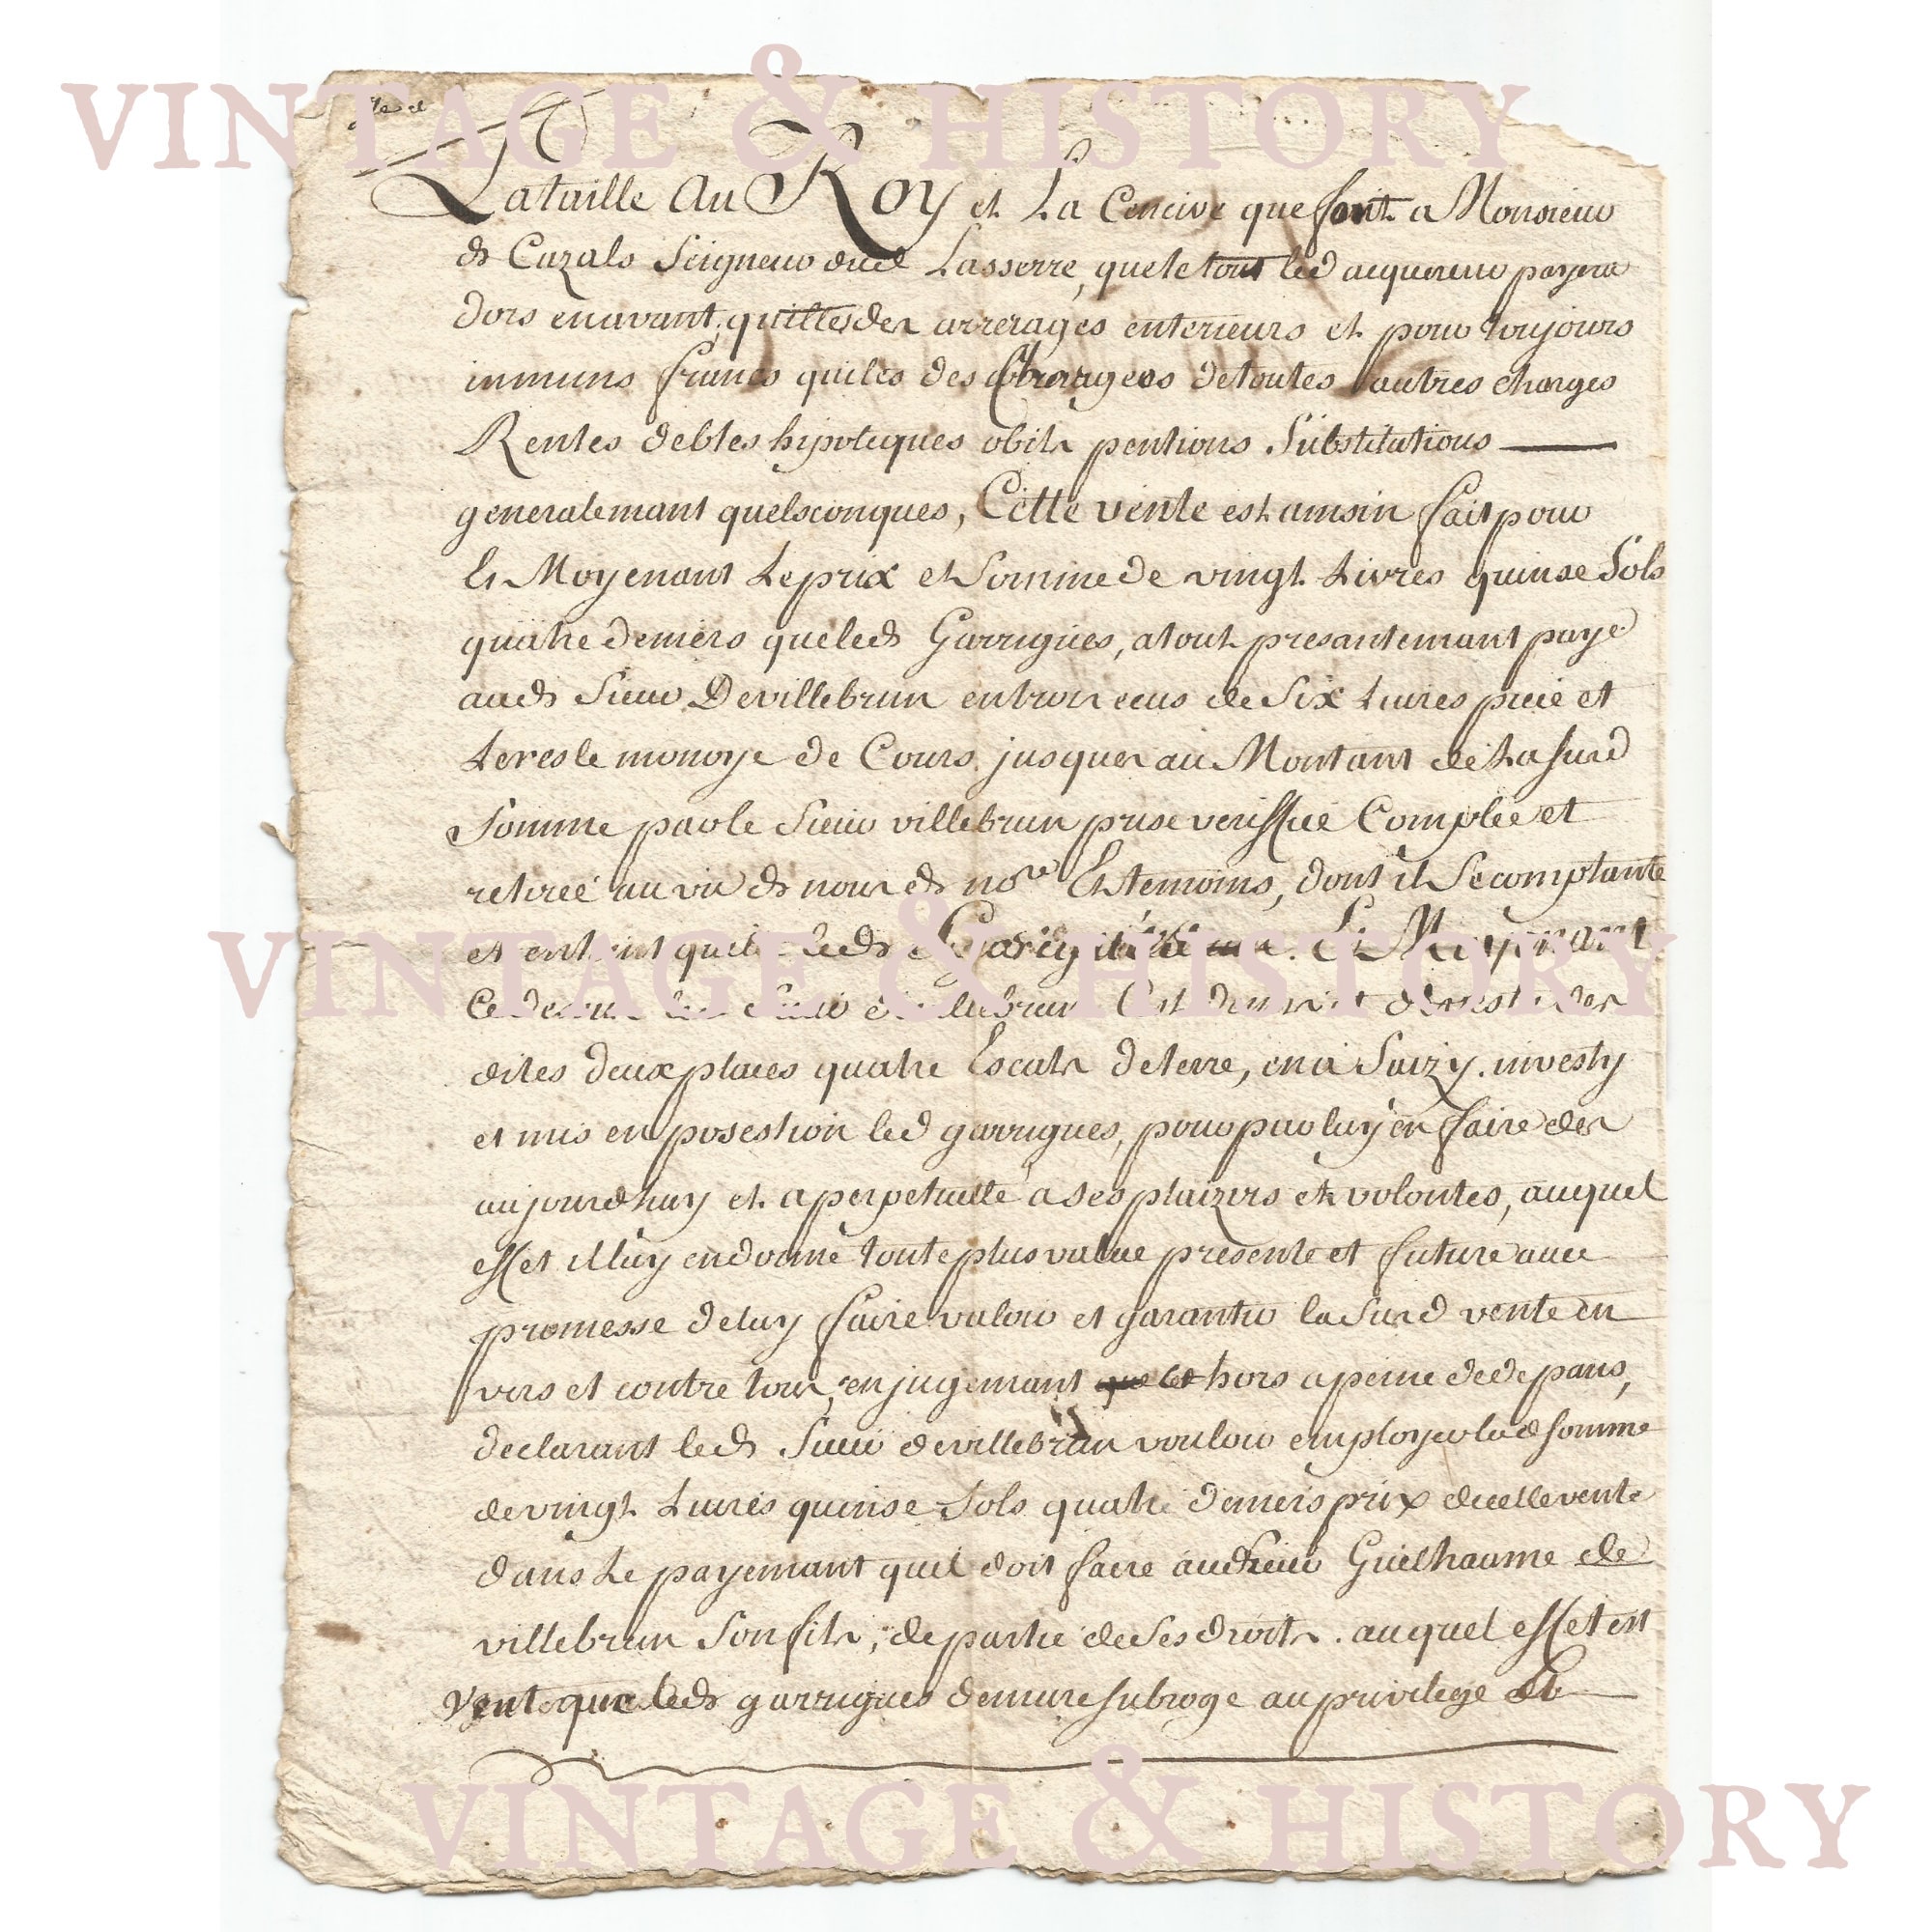 VINTAGE & HISTORY
Lataille Au Roy et La Cencive que font a Monsieur
de Cazals Seigneur dud Lasserre, que le tout led acquereur payera
dors en avant, quittes des arrerages enterieurs et pour toujours
immuns francs quites des Charges de toutes autres charges
Rentes debtes hipoteques obits pentions Substitutions
generalemant quelsconques, Cette vente est ainsin fait pour
Et Moyenant Le prix et Somme de vingt Livres quinse Sols
quatre deniers que led Garrigues, a tout presantemant payé
aud Sieur Devillebrun en trois ecus de Six Livres piece et
Le reste monoye de Cours jusques au Montant de La susd
Somme par le Sieur villebrun prise veriffiée Complée et
retireé au vu de nous d nore Et temoins, dont il Se comptante
et en tient quite led Garrigues. Et Moyenant
Ce dessus led Sieur devillebrun C'est demis et devestu des
dites deux places quatre Escats de terre, en a Saizy. investy
et mis en posestion led garrigues, pour par luy en faire des
aujourdhuy et a perpetuitté a ses plaizirs et volontes, auquel
effet il luy en donne toute plus value presente et future avec
promesse de luy faire valoir et garantir la susd vente en
vers et contre tous, en jugemant hors a peine de depans,
declarant led Sieur devillebrun vouloir employer lad somme
de vingt Livres quinse Sols quatre deniers prix dicelle vente
dans Le payemant quil doit faire aud Sieur Guilhaume de
villebrun Son fils, de partie de Ses droits. auquel effet est
Veut que led garrigues demure subroge au privilege et
VINTAGE & HISTORY
VINTAGE & HISTORY